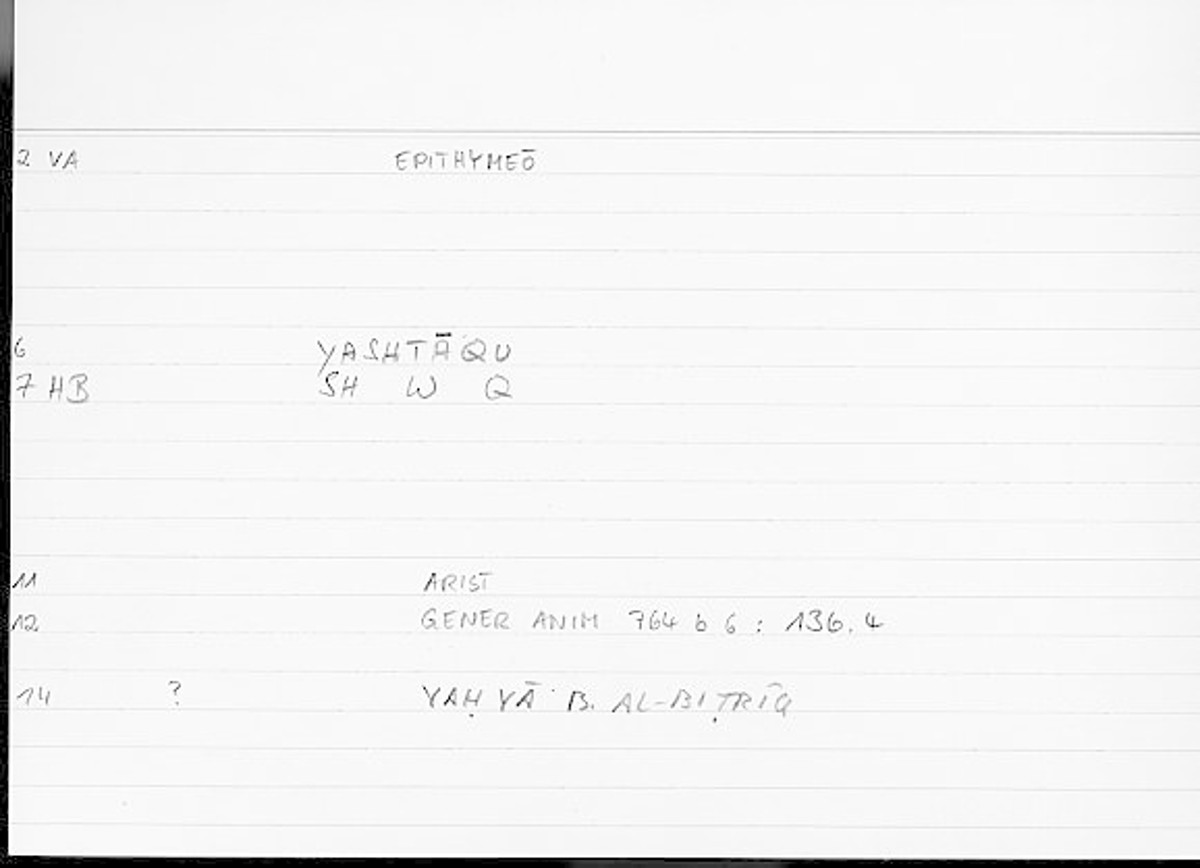 2 VA EPITHYMEŌ
6 YASHTĀQU
7 HB SH W Q
11 ARIST
12 GENER ANIM 764 b 6 : 136.4
14 ? YAḤYĀ B. AL-BIṬRĪQ